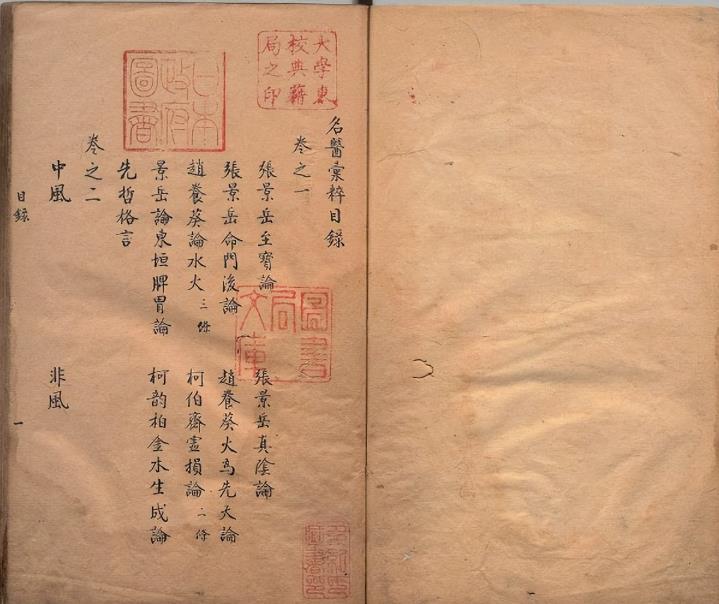 大學東
校典籍
局之印
日本
政府
圖書
名醫彙粹目錄
卷之一
張景岳至寳論　張景岳真陰論
張景岳命門後論　趙養葵火為先天論
趙養葵論水火三條　柯伯齋虛損論二條
景岳論東垣脾胃論　柯韵柏金水生成論
先哲格言
卷之二
中風　非風
目錄　一
圖書
局
文庫